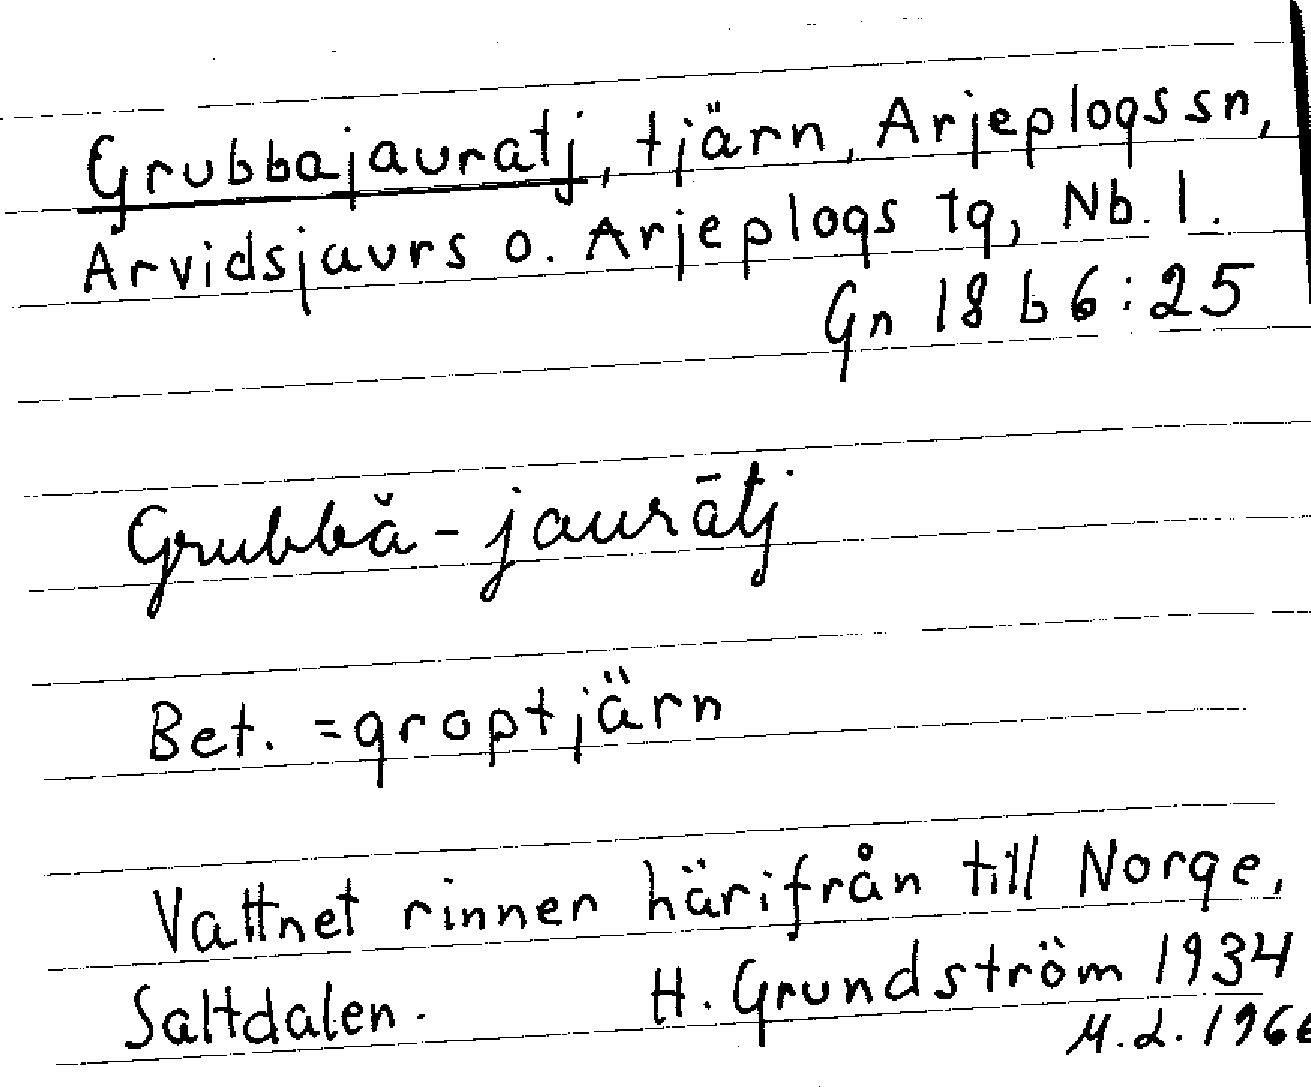 Grubbajauratj, tjärn, Arjeplogs sn,
Arvidsjaurs o. Arjeplogs tg, Nb. l.
Gn 18 b 6:25
Grubbǎ-jaurātj
Bet. = groptjärn
Vattnet rinner härifrån till Norge,
Saltdalen. H. Grundström 1934